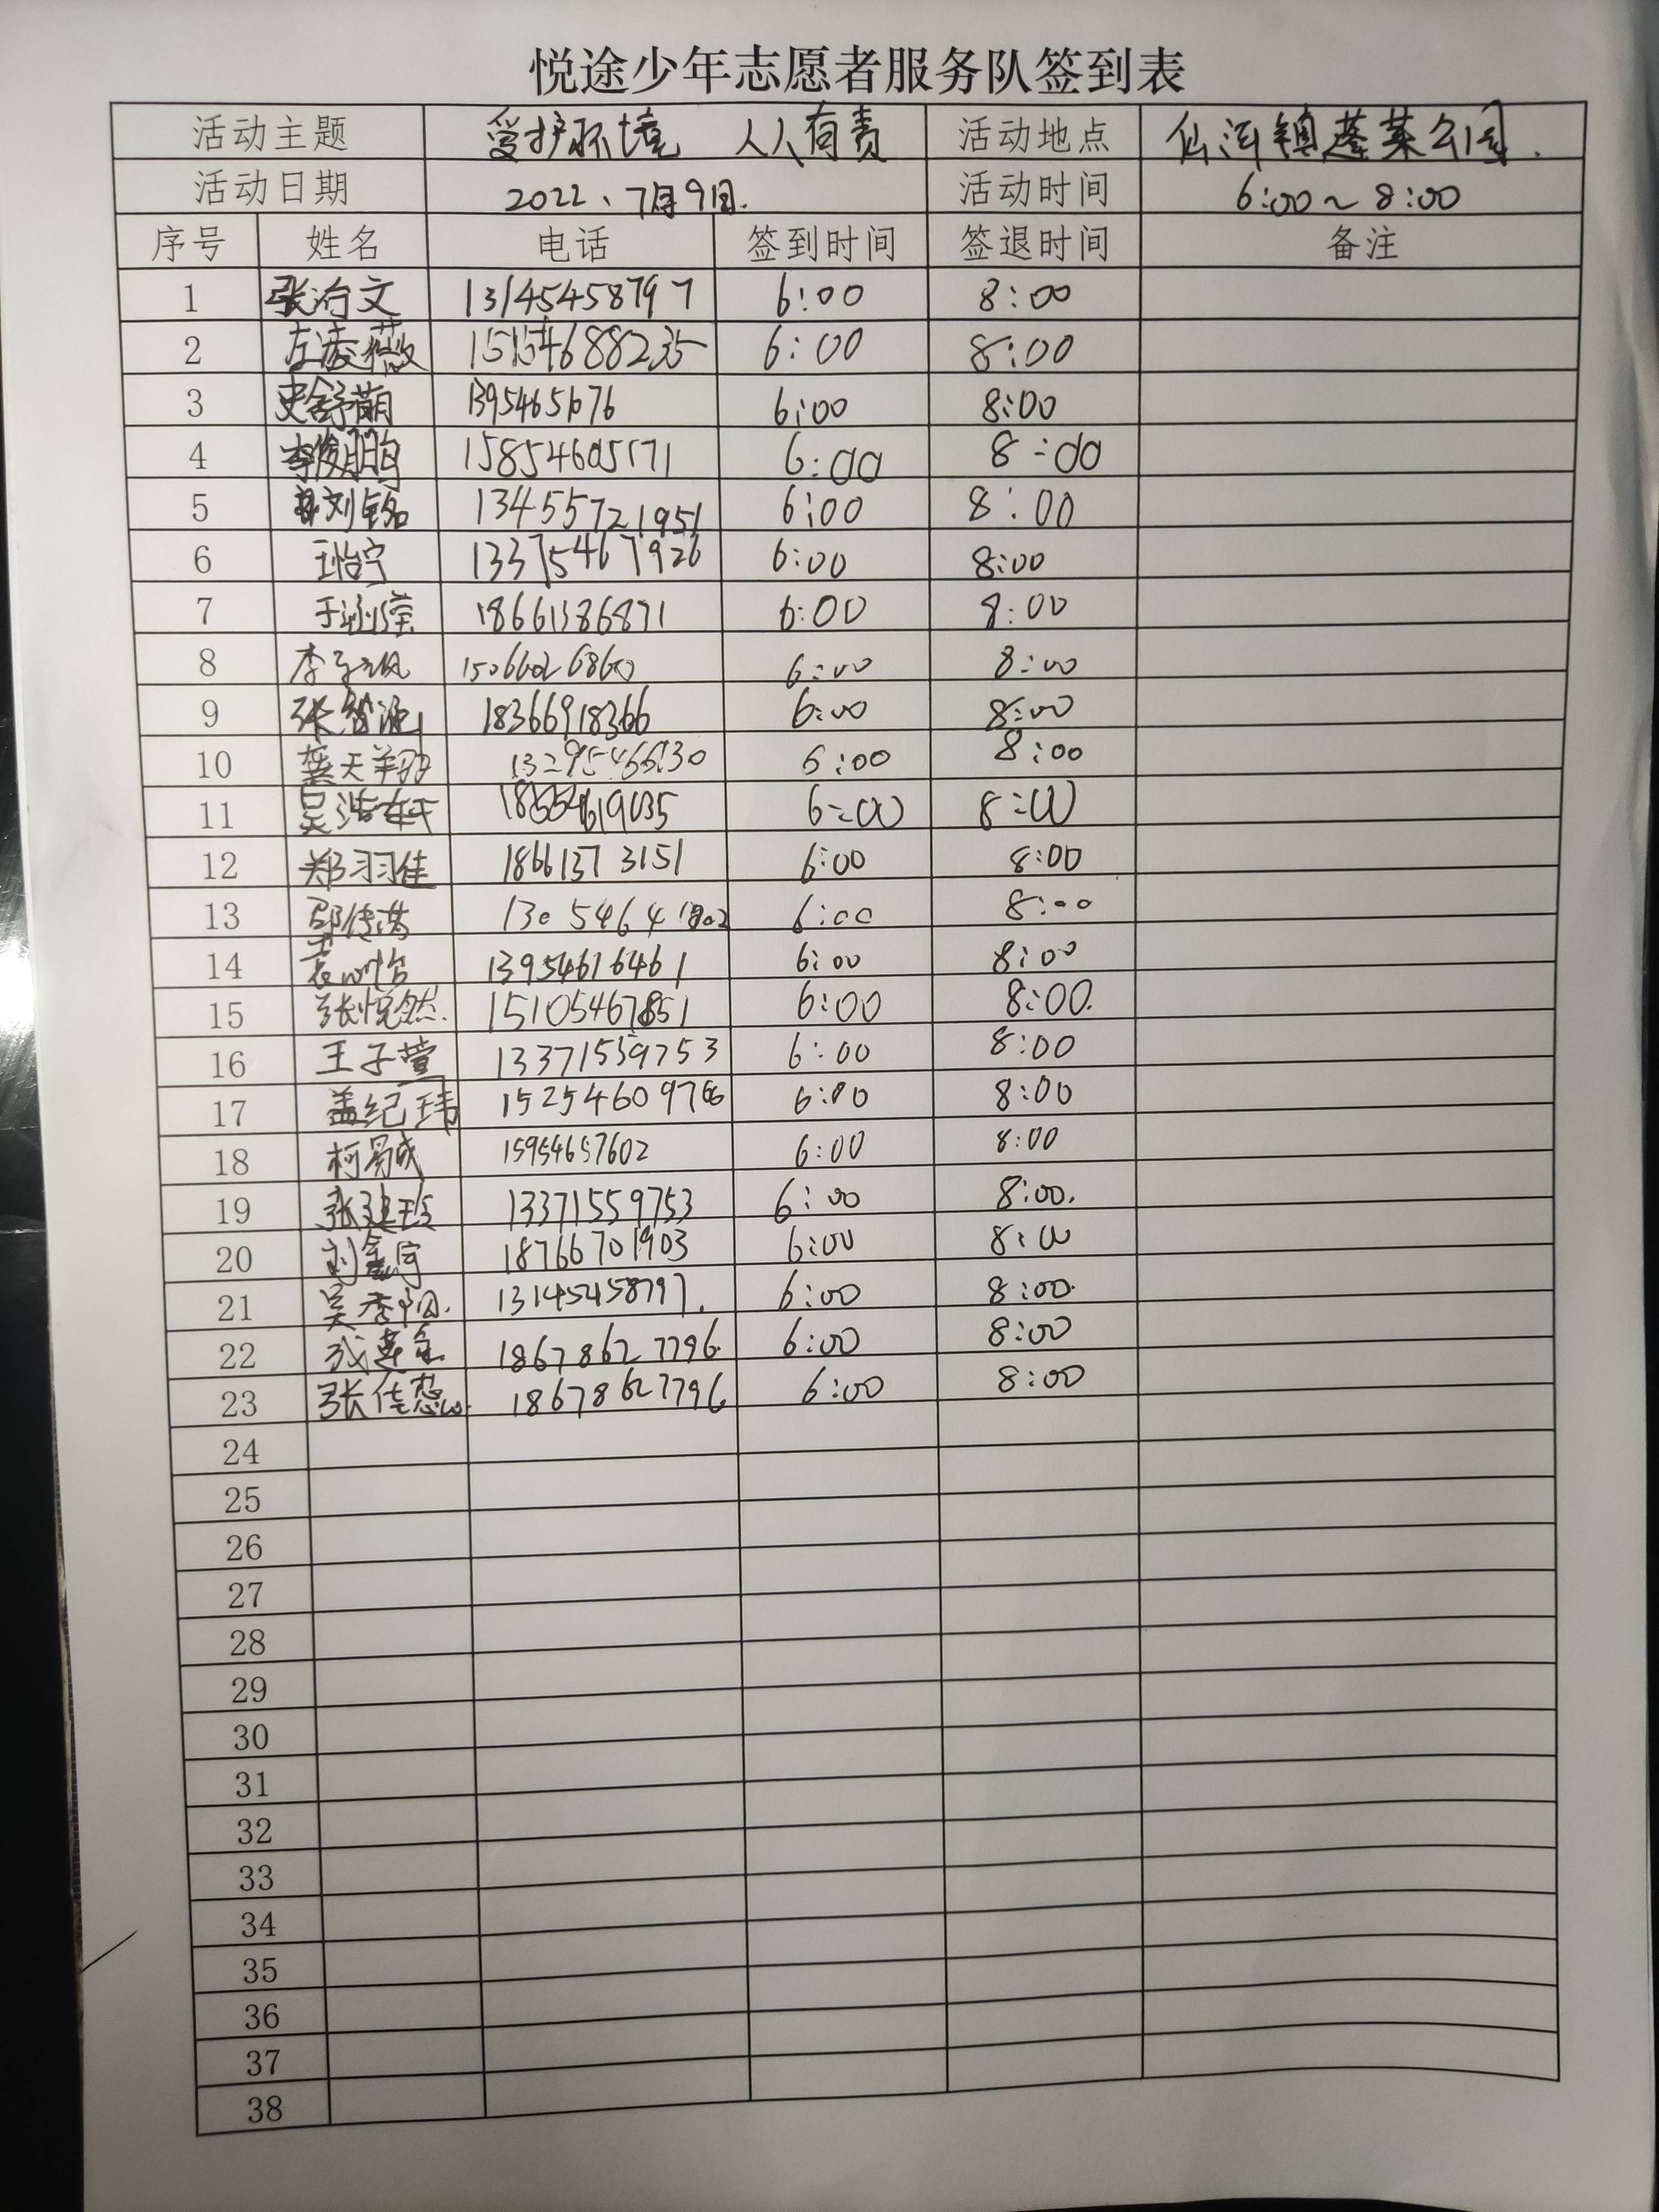 悦途少年志愿者服务队签到表
活动主题 爱护环境 人人有责 活动地点 仙河镇蓬莱公园.
活动日期 2022、7月9日. 活动时间 6:00～8:00
序号 姓名 电话 签到时间 签退时间 备注
1 张洧文 13145458797 6:00 8:00
2 左凌薇 15154688235 6:00 8:00
3 史舒萌 13954651676 6:00 8:00
4 李俊鹏 15854605171 6:00 8:00
5 刘铭 13455721951 6:00 8:00
6 王怡宁 13375467926 6:00 8:00
7 于涵滢 18661386871 6:00 8:00
8 李 15066026860 6:00 8:00
9 张智 18366918366 6:00 8:00
10 龚天翔 13295466130 6:00 8:00
11 吴浩轩 18554619035 6:00 8:00
12 郑羽佳 18661373151 6:00 8:00
13 13054641802 6:00 8:00
14 13954616461 6:00 8:00
15 张悦然. 15105467851 6:00 8:00.
16 王子萱 13371559753 6:00 8:00
17 盖纪玮 15254609766 6:00 8:00
18 柯易成 15954657602 6:00 8:00
19 张廷 13371559753 6:00 8:00.
20 刘鑫宇 18766701903 6:00 8:00
21 吴季阳. 13145458797. 6:00 8:00.
22 18678627796. 6:00 8:00
23 张佳 18678627796 6:00 8:00
24
25
26
27
28
29
30
31
32
33
34
35
36
37
38